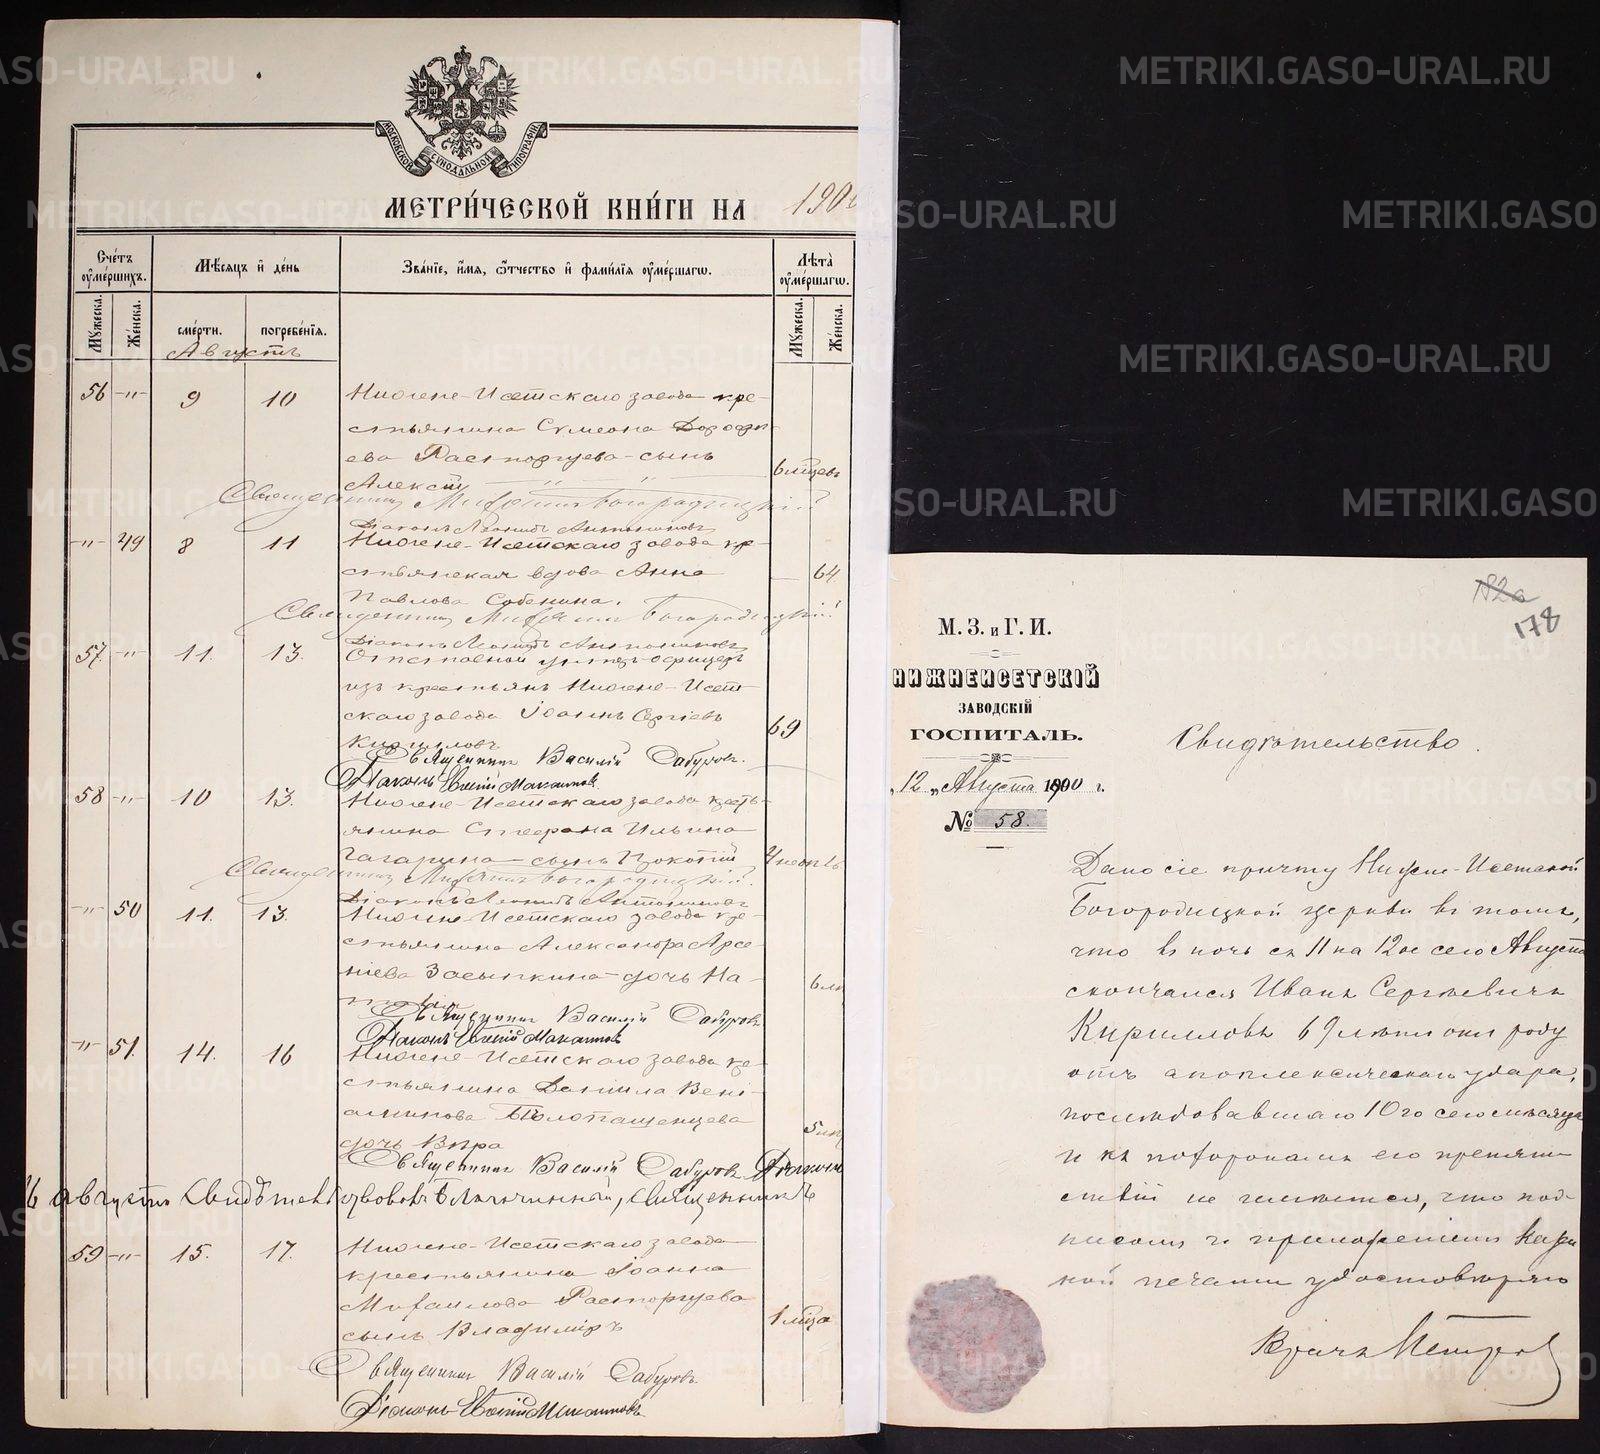 МОСКОВСКОЙ СѴНОДАЛЬНОЙ ТИПОГРАФІИ
МЕТРИ́ЧЕСКОЙ КНИ́ГИ НА 1900
Сче́тъ оу҆ме́ршихъ.
Мѣ́сяцъ и҆ де́нь
Зва́нїе, и҆́мя, ѻ҆́тчество и҆ фами́лїя оу҆ме́ршагѡ.
Лѣта̀ оу҆ме́ршагѡ.
Мꙋ́жеска.
Же́нска.
сме́рти.
погребе́нїя.
Мꙋ́жеска.
Же́нска.
Августъ
56 -"- 9 10 Нижне-Исетскаго завода кре-
стьянина Симеона Дорофи-
ева Расторгуева-сынъ
6 мѣсцевъ
Алексій
Священникъ Михаилъ Богородицкій
Діаконъ Леонидъ Антониновъ
-"- 49 8 11 Нижне-Исетскаго завода кре-
стьянская вдова Анна
64
Павлова Собенина.
Священникъ Михаилъ Богородицкій
Діаконъ Леонидъ Антониновъ
57 -"- 11. 13. Отставной унтеръ-офицеръ
изъ крестьянъ Нижне-Исет-
скаго завода Іоаннъ Сергіевъ
69
Кирилловъ
Священникъ Василій Сабуровъ.
Діаконъ
58 -"- 10 13. Нижне-Исетскаго завода кресть-
янина Стефана Ильина
Гагарина-сынъ Прокопій
4
Священникъ Михаилъ Богородицкій.
Діаконъ Леонидъ Антониновъ
-"- 50 11. 13. Нижне-Исетскаго завода кре-
стьянина Александра Арсе-
ніева Засыпкина-дочь На-
6
талія
Священникъ Василій Сабуровъ
Діаконъ
-"- 51. 14. 16 Нижне-Исетскаго завода кре-
стьянина Даніила Вені-
аминова Бѣлопашенцева
5
дочь Вѣра
Священникъ Василій Сабуровъ Діаконъ
16 августа Благочинный, священникъ
59 -"- 15. 17. Нижне-Исетскаго завода
крестьянина Іоанна
Михаилова Расторгуева
1 мѣсца
сынъ Владиміръ
Священникъ Василій Сабуровъ
Діаконъ
182а
178
М. З. и Г. И.
НИЖНЕИСЕТСКІЙ
ЗАВОДСКІЙ
ГОСПИТАЛЬ.
"12" Августа 1900 г.
№ 58.
Свидѣтельство.
Дано сіе причту Нижне-Исетской
Богородицкой церкви въ томъ,
что въ ночь съ 11 на 12ое сего Августа
скончался Иванъ Сергѣевичъ
Кирилловъ 69 лѣтъ отъ роду
отъ апоплексическаго удара,
послѣдовавшаго 10го сего мѣсяца
и къ похоронамъ его препят-
ствій не имѣется, что под-
писомъ и приложеніемъ казен
ной печати удостовѣряю
Врачъ Петровъ
METRIKI.GASO-URAL.RU